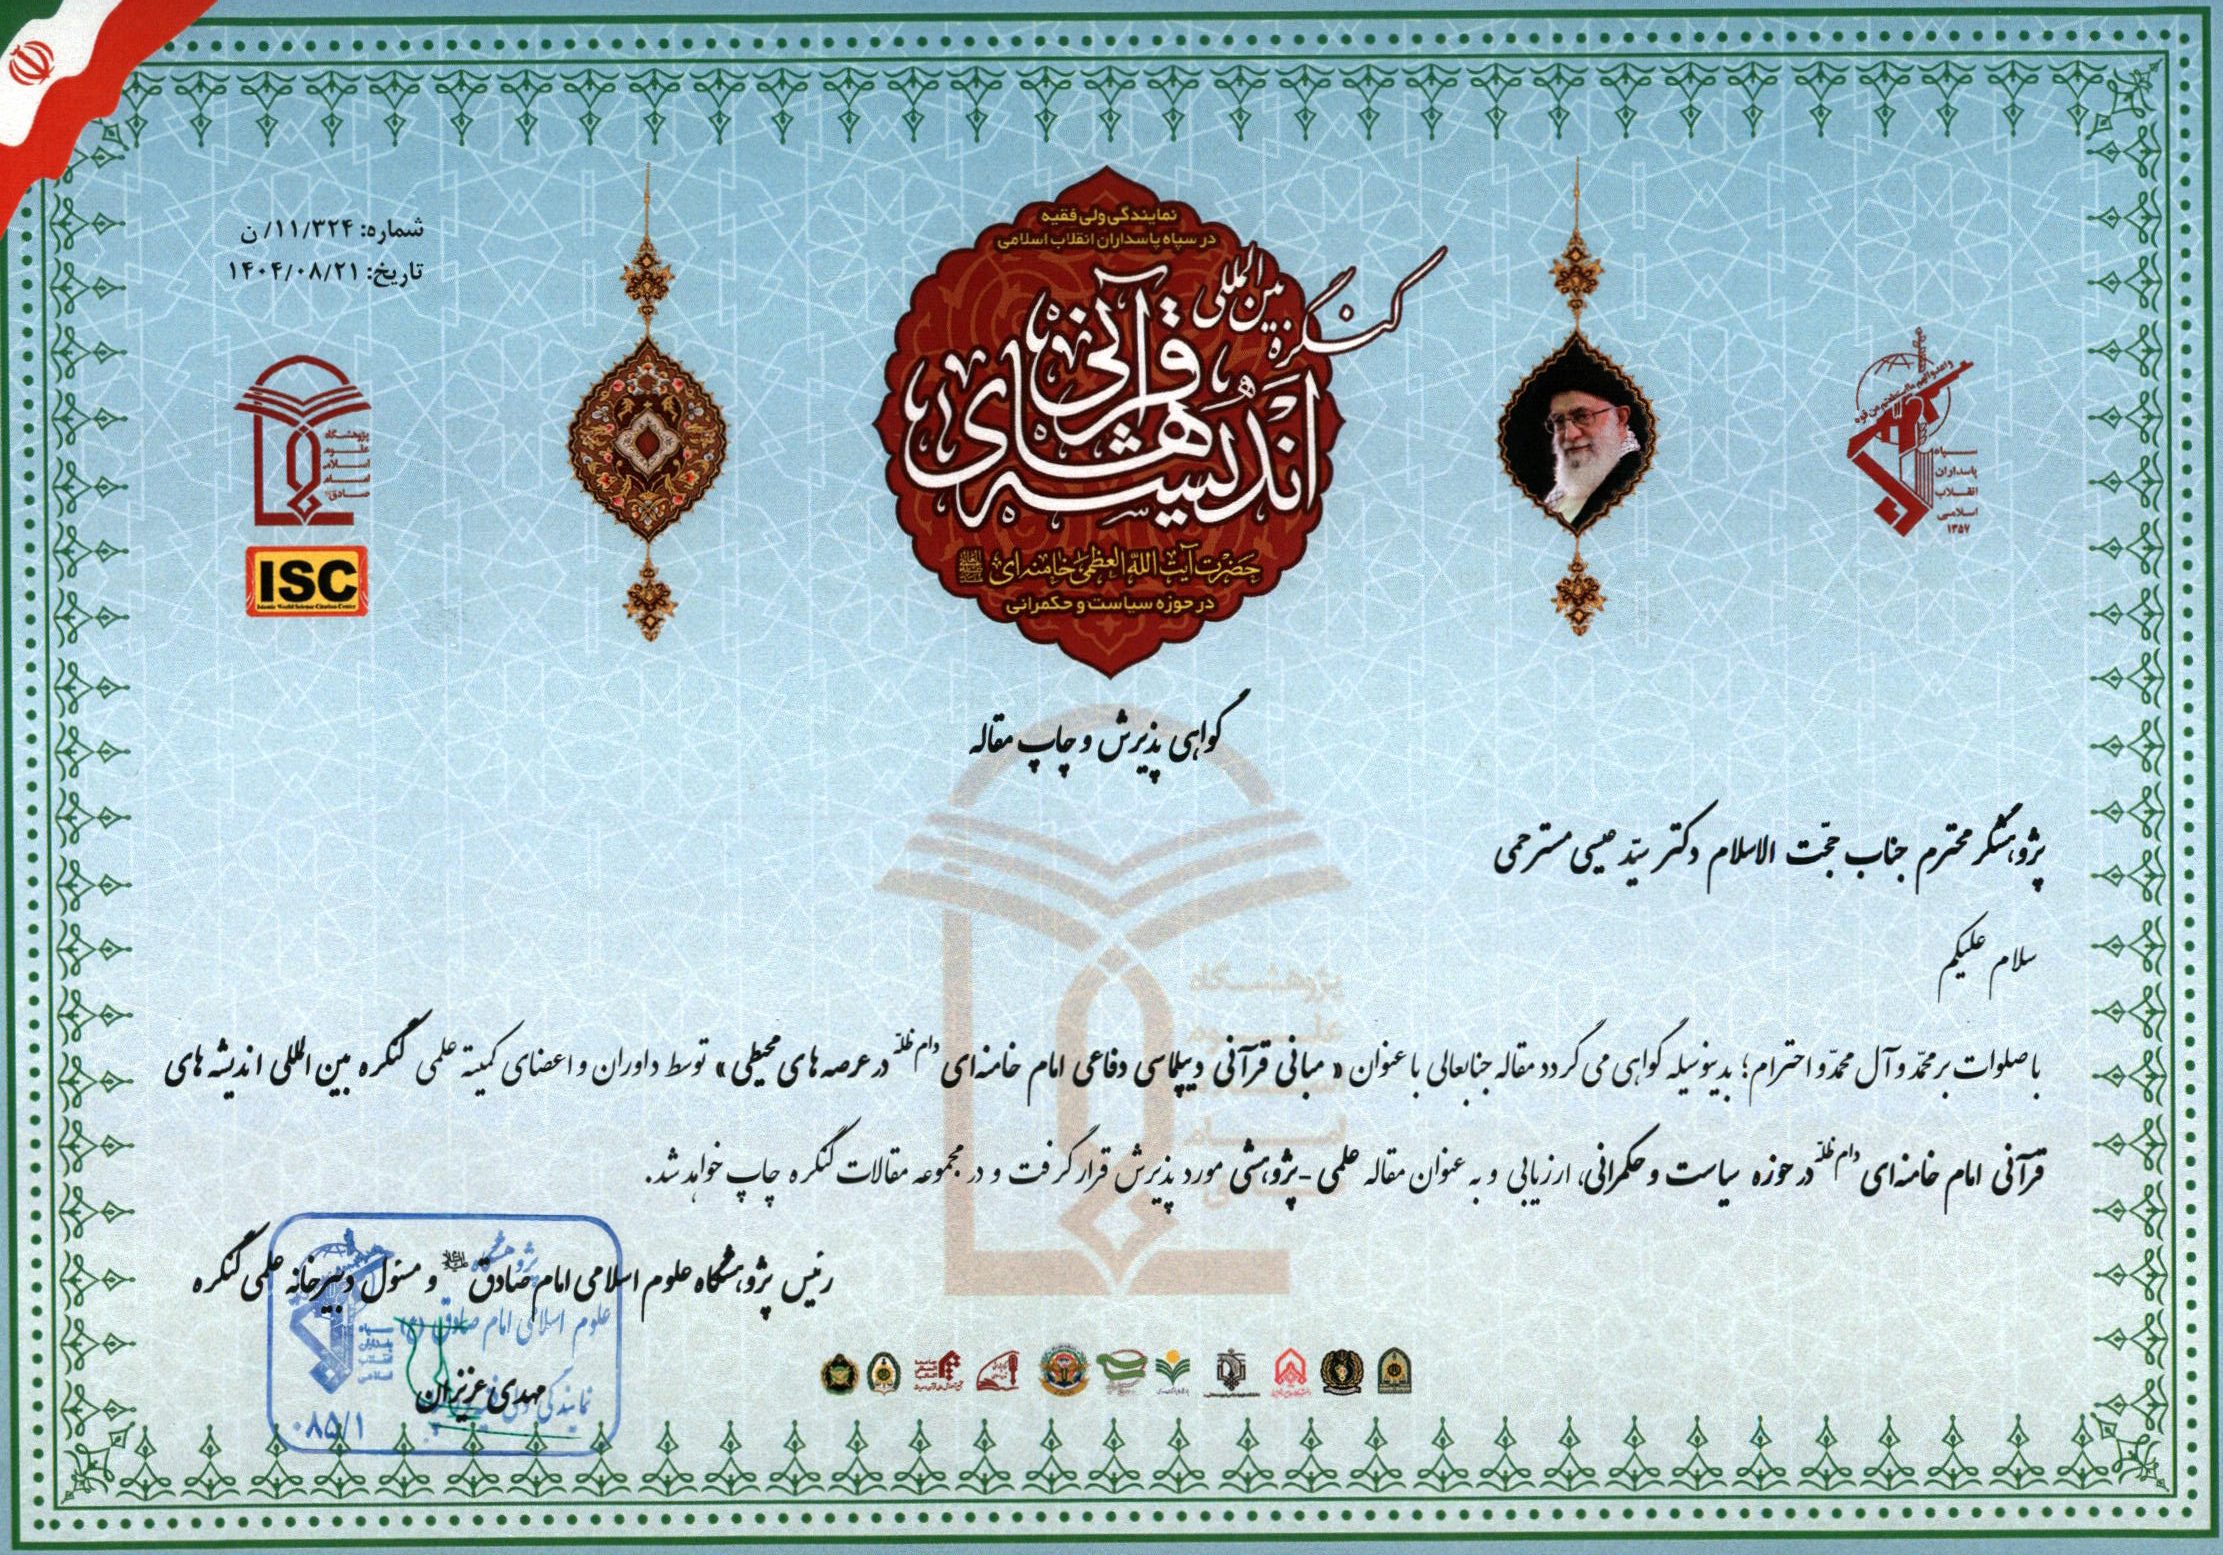 شماره: ۱۱/۳۲۴/ن
تاریخ: ۱۴۰۴/۰۸/۲۱
نمایندگی ولی فقیه
در سپاه پاسداران انقلاب اسلامی
کنگره بین‌المللی
اندیشه‌های قرآنی
حضرت آیت الله العظمی خامنه‌ای
در حوزه سیاست و حکمرانی
سپاه
پاسداران
انقلاب
اسلامی
۱۳۵۷
پژوهشگاه
علوم
اسلامی
امام
صادق
ISC
Islamic World Science Citation Center
گواهی پذیرش و چاپ مقاله
پژوهشگر محترم جناب حجّت الاسلام دکتر سیّد عیسی مسترحمی
سلام علیکم
با صلوات بر محمّد و آل محمّد و احترام؛ بدینوسیله گواهی می گردد مقاله جنابعالی با عنوان « مبانی قرآنی دیپلماسی دفاعی امام خامنه‌ای دام ظلّه در عرصه های محیطی» توسط داوران و اعضای کمیته علمی کنگره بین المللی اندیشه های
قرآنی امام خامنه‌ای دام ظلّه در حوزه سیاست و حکمرانی، ارزیابی و به عنوان مقاله علمی -پژوهشی مورد پذیرش قرار گرفت و در مجموعه مقالات کنگره چاپ خواهد شد.
رئیس پژوهشگاه علوم اسلامی امام صادق و مسئول دبیرخانه علمی کنگره
مهدی عزیزان
پژوهشگاه
علوم اسلامی امام صادق (ع)
سپاه
پاسداران
انقلاب
اسلامی
۰۸۵/۱